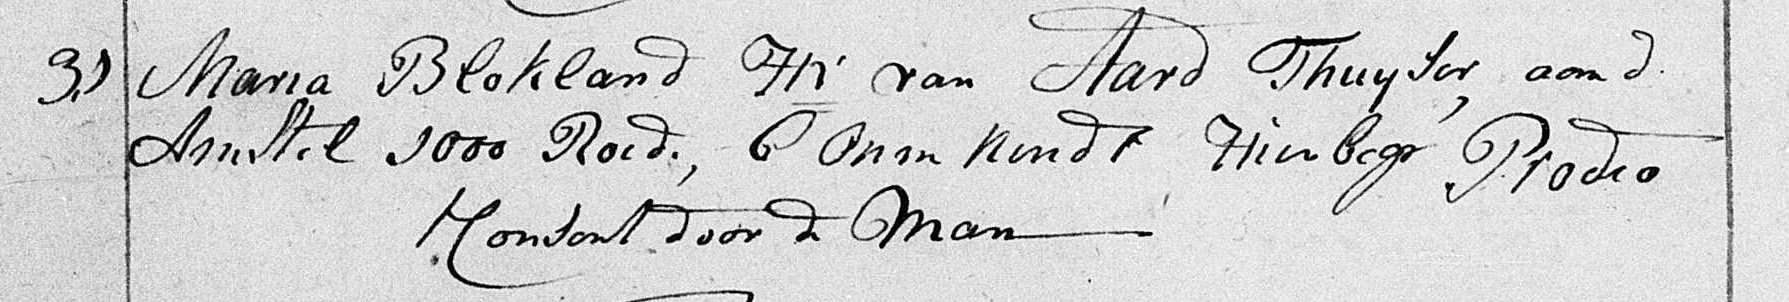 3.) Maria Blokland Hv van Aard Thuyser, aan d.
Amstel 1000 Roed., 6 Onm kind Hier begr Prodio
Konsent door de Man